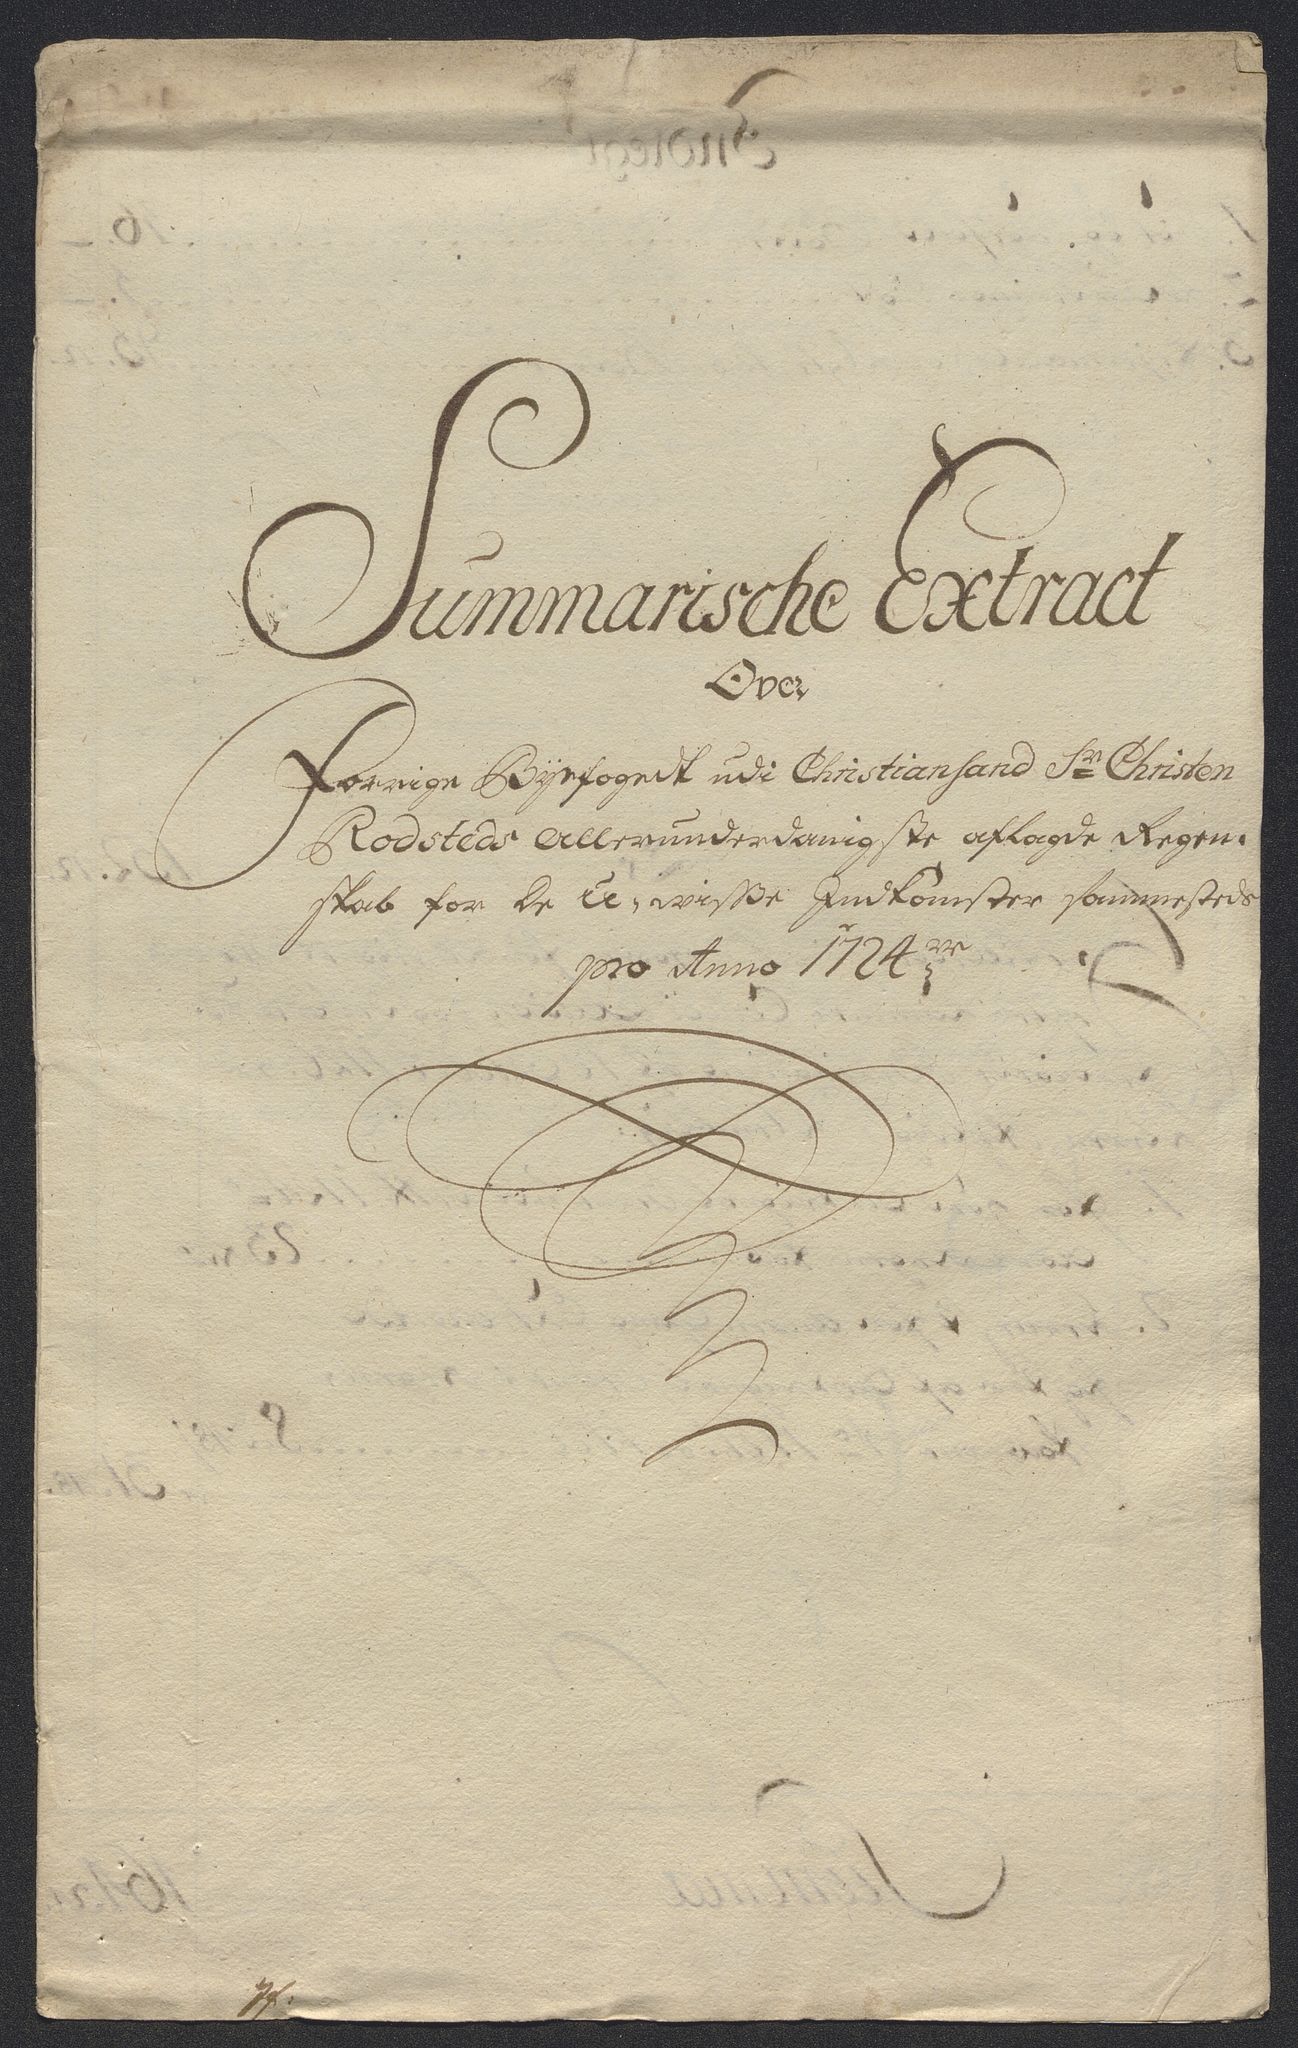 Summarische Extract
Over
Forrige Býefogedt udi Christiansand Sr Christen
Rodsteds allerunderdanigste aflagde Regen-
skab for de U-wisse Indkomster sammesteds
pro Anno 1724